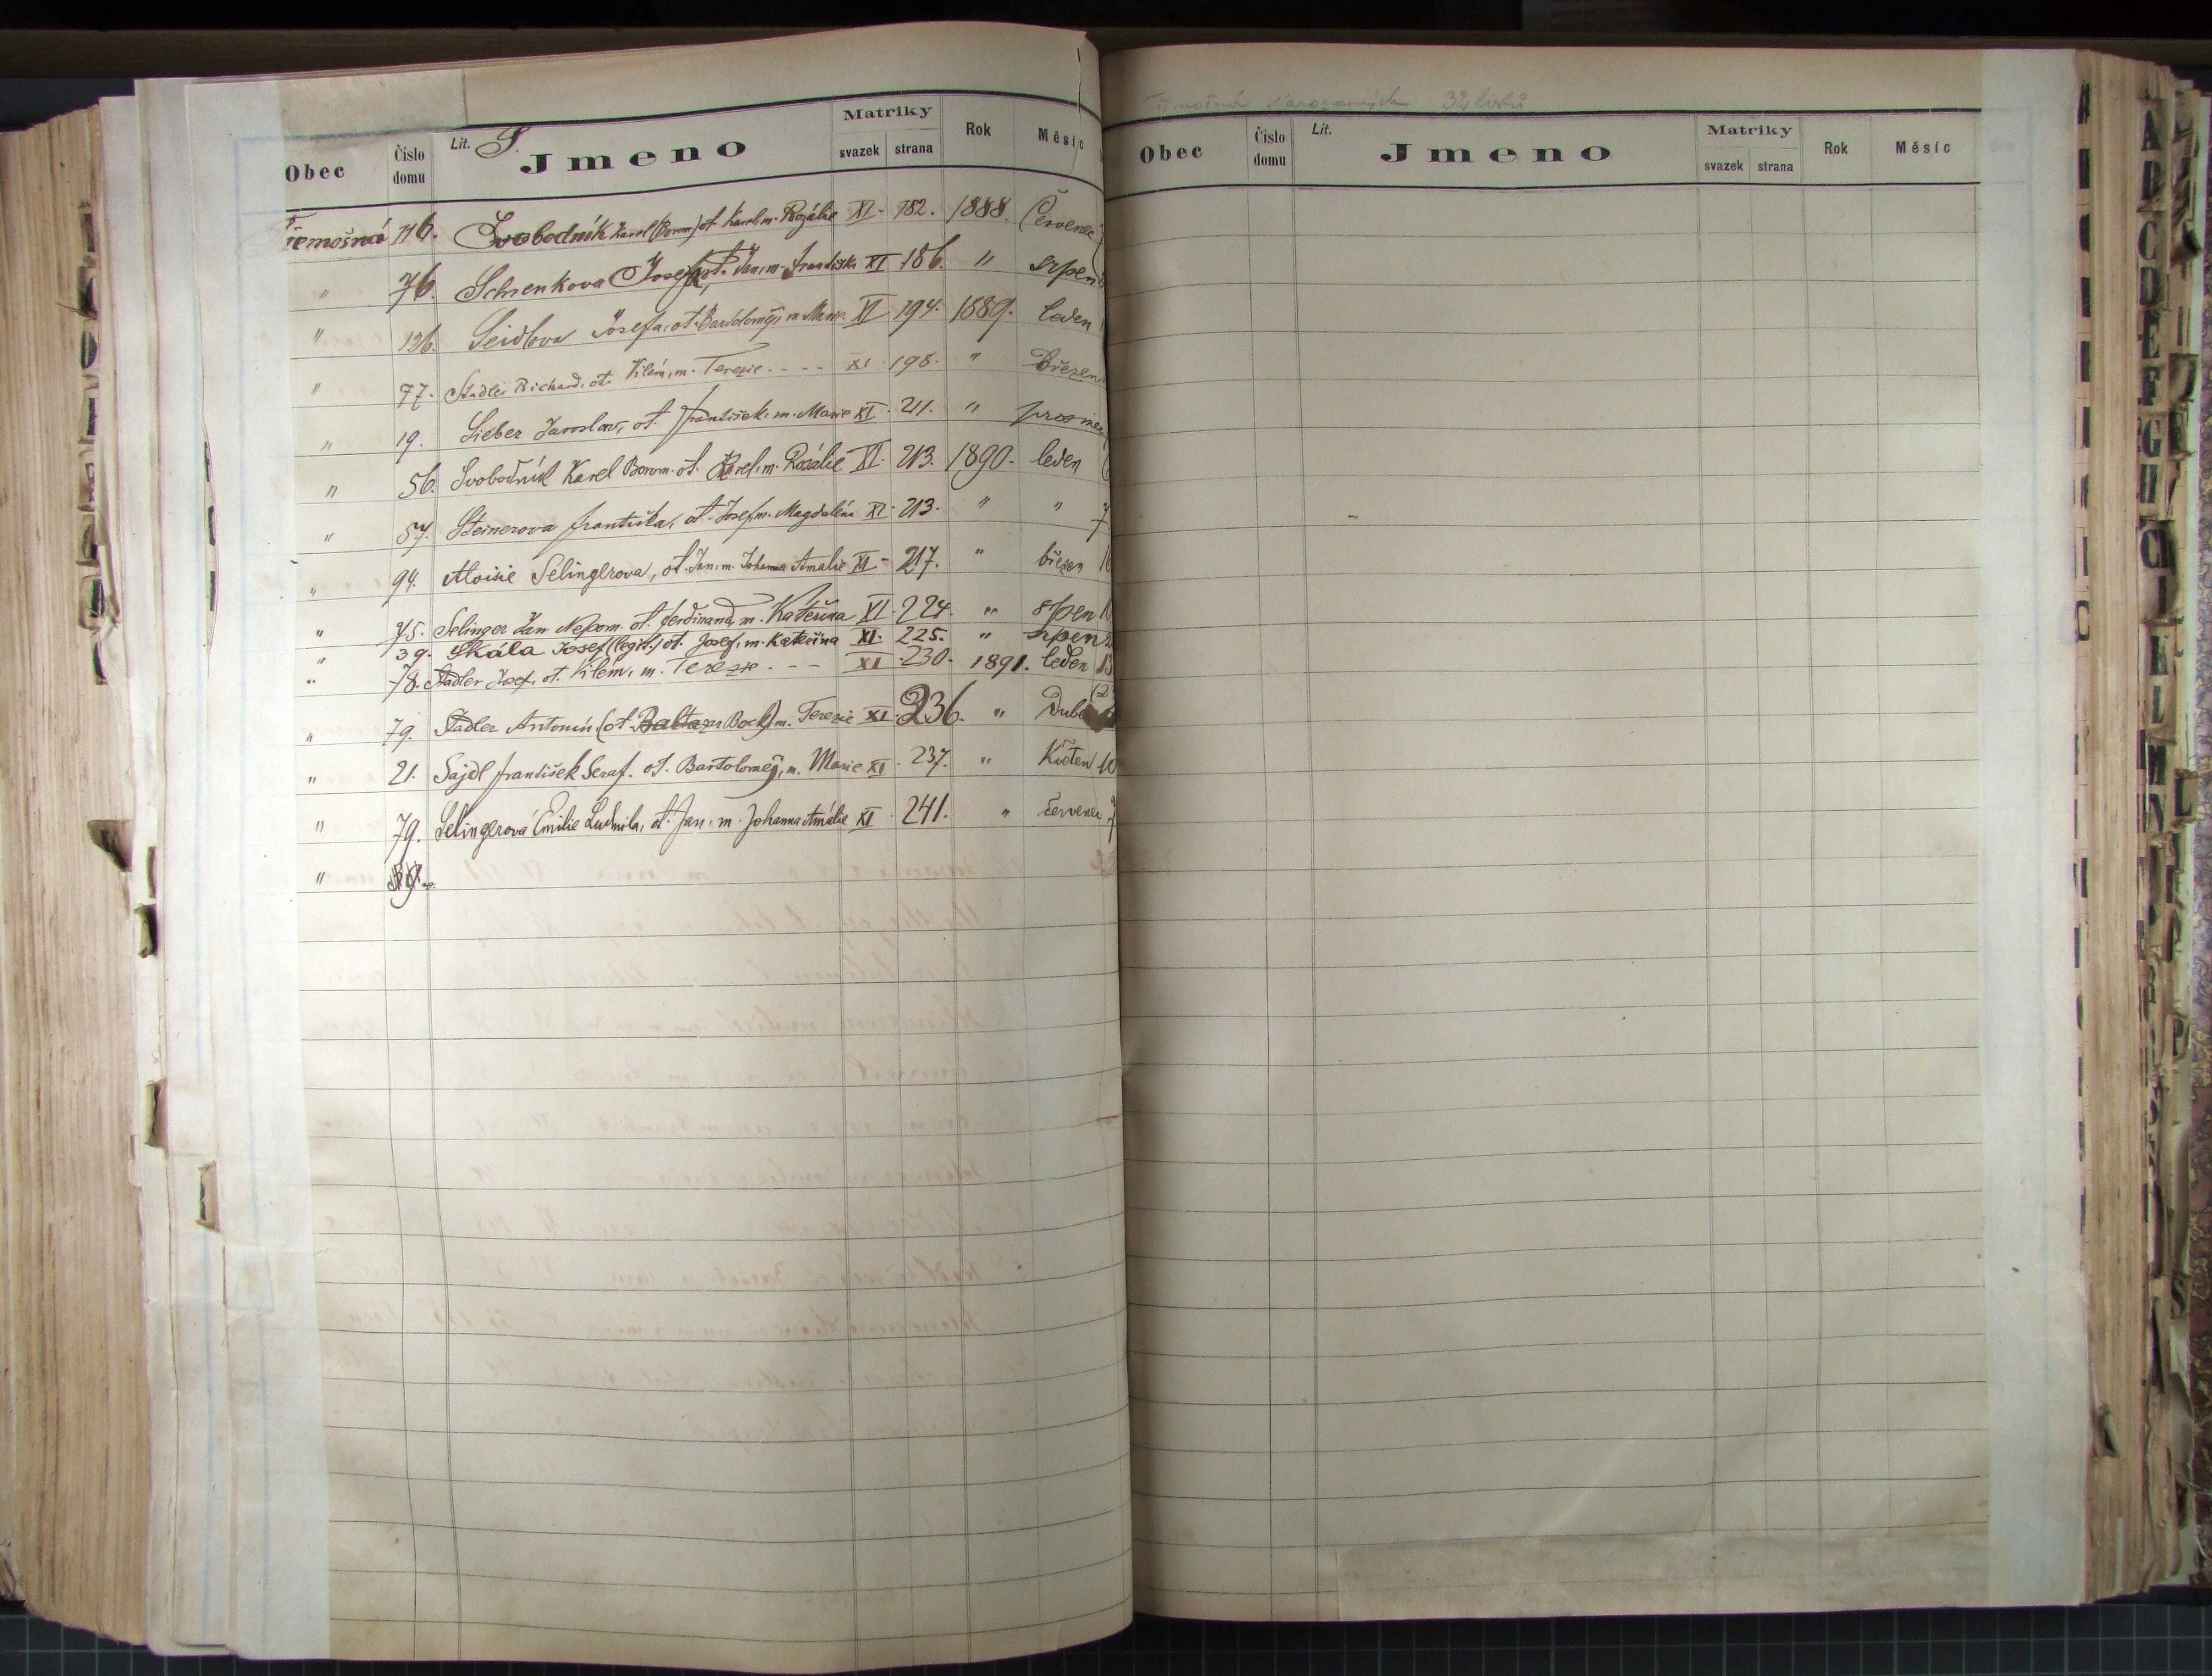 Obec Číslo domu Lit. S. Jmeno Matriky svazek strana Rok Měsíc
Třemošná 116. Svobodník Karel (Borom) ot. Karel m. Rozálie XI. 182. 1888. Červenec
" 76. Schrenkova Josefa, ot. Jan, m. Františka XI 186. " srpen
" 136. Seidlova Josefa, ot. Bartoloměj, m. Marie XI 194. 1889. leden
" 77. Stadler Richard, ot. Vilém, m. Terezie - - - XI 198. " Březen
" 19. Sieber Jaroslav, ot. František, m. Marie XI. 211. " prosinec
" 56. Svobodník Karel Borom. ot. Karel, m. Rozálie XI. 213. 1890. leden
" 57. Steinerova Františka, ot. Josef, m. Magdaléna XI. 213. " " 7
" 94. Aloisie Selingerova, ot. Jan, m. Johanna Amalie XI - 217. " březen
" 75. Selinger Jan Nepom. ot. Ferdinand, m. Kateřina XI. 224. " srpen
" 39. Skála Josef (legit.) ot. Josef, m. Kateřina XI. 225. " srpen
" 78. Stadler Josef, ot. Vilém, m. Terezie - - - XI 230. 1891. leden 13
" 79. Stadler Antonín (ot. Baltazar Bock) m. Terezie XI. 236. " Dube
" 21. Sajdl František Seraf. ot. Bartoloměj, m. Marie XI. 237. " Květen 10
" 79. Selingerová Emilie Ludmila, ot. Jan, m. Johanna Amálie XI. 241. " červenec
"
Třemošná Narozených 32 listů
Obec Číslo domu Lit. Jmeno Matriky svazek strana Rok Měsíc